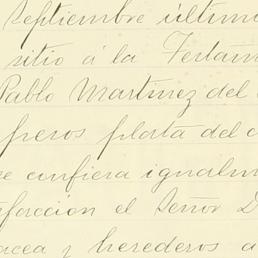 septiembre último
sitio á la Testam
Pablo Martínez del
pesos plata del c
se confiera igualm
sfaccion el Señor D
acea y herederos a